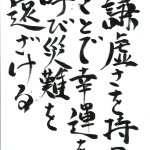 謙虚さを持つ
ことで幸運を
呼び災難を
遠ざける